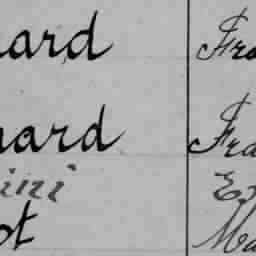 ard Fra
ard Fra
ini E
ot Ma